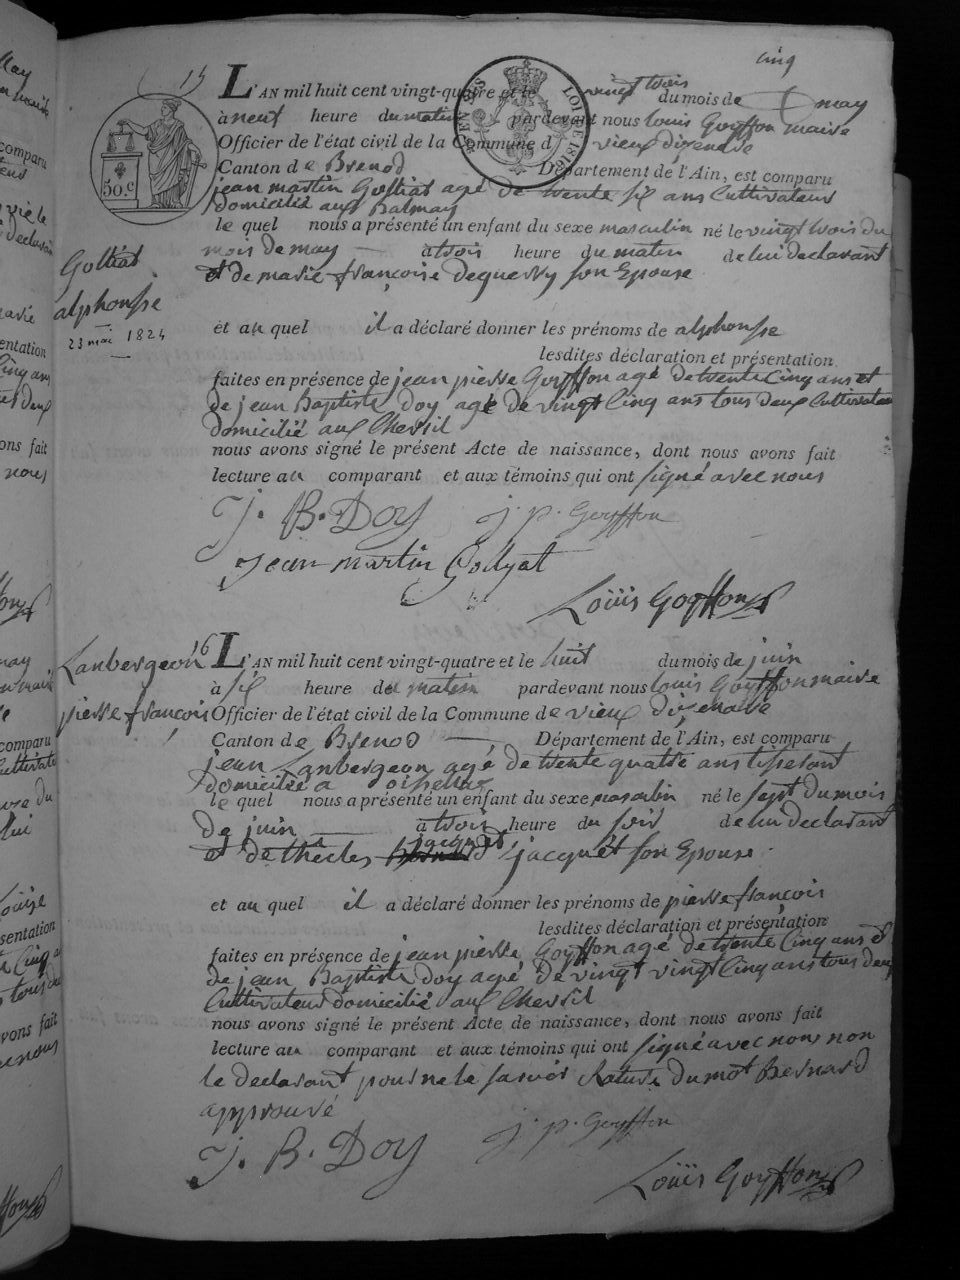 cinq
15
L'AN mil huit cent vingt-quatre et le vingt trois du mois de may
à neuf heure du matin pardevant nous louis Goyffon maire
Officier de l'état civil de la Commune d vieux dizenave
Canton de Brenod Département de l'Ain, est comparu
jean martin Golliat agé de trente six ans Cultivateur
domicilié aux Balmay
le quel nous a présenté un enfant du sexe masculin né le vingt trois du
mois de may à trois heure du matin de lui declarant
et de marie françoise deguerry son Epouse
Golliat
alphonsse
23 mai 1824
et au quel il a déclaré donner les prénoms de alphonsse
lesdites déclaration et présentation
faites en présence de jean pierre Goyffon agé de trente Cinq ans et
de jean Baptiste Doy agé de vingt Cinq ans tous deux Cultivateur
domicilié aux Chevril
nous avons signé le présent Acte de naissance, dont nous avons fait
lecture au comparant et aux témoins qui ont signé avec nous
J. B. Doy j. p. Goyffon
Jean martin Gollyat
Loüis Goyffon
16
Lanbergeon
pierre françois
L'AN mil huit cent vingt-quatre et le huit du mois de juin
à six heure du matin pardevant nous louis Goyffon maire
Officier de l'état civil de la Commune de vieux dizenave
Canton de Brenod Département de l'Ain, est comparu
jean Lanbergeon agé de trente quatre ans tisserant
domicilié a oissellaz
le quel nous a présenté un enfant du sexe masculin né le sept du mois
de juin à trois heure du soir de lui declarant
et de thecles jacquet son Epouse
et au quel il a déclaré donner les prénoms de pierre françois
lesdites déclaration et présentation
faites en présence de jean pierre Goyffon agé de trente Cinq ans et
de jean Baptiste Doy agé de vingt vingt Cinq ans tous deux
Cultivateur domicilié aux Chevril
nous avons signé le présent Acte de naissance, dont nous avons fait
lecture au comparant et aux témoins qui ont signé avec nous non
le declarant pour ne le savoir Rature du mot Bernard
approuvé
J. B. Doy j. p. Goyffon
Loüis Goyffon